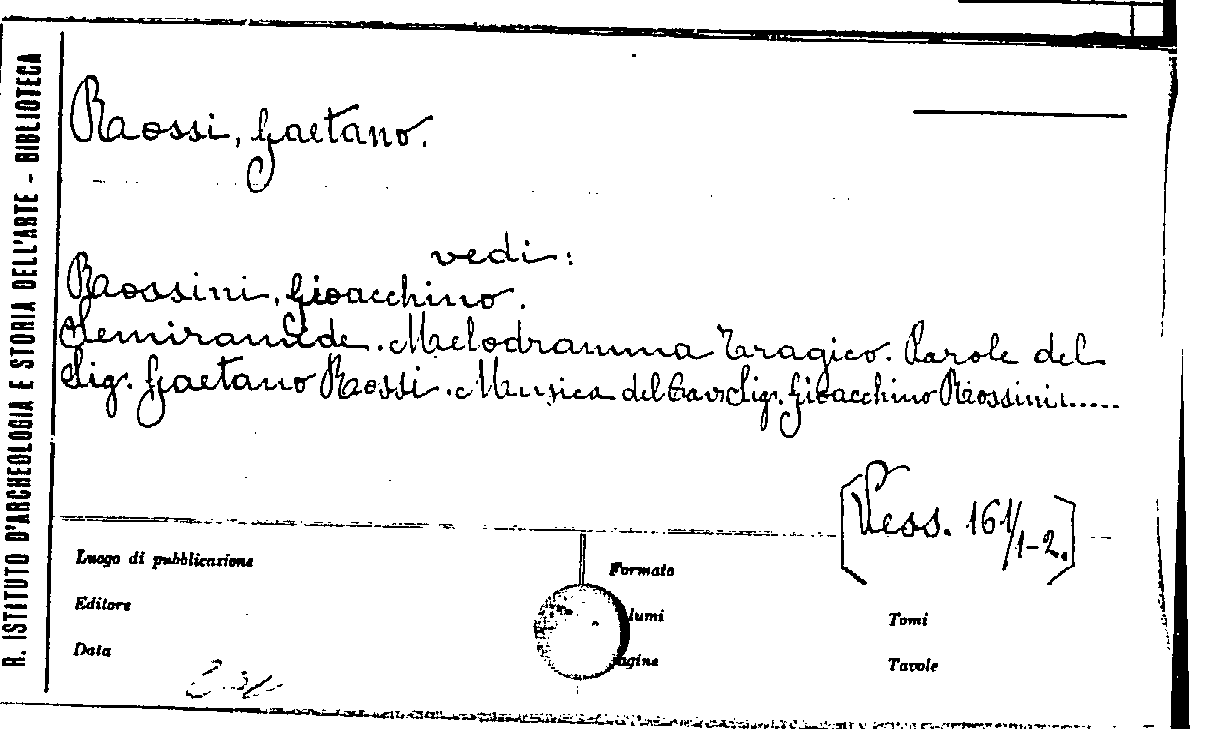 R. ISTITUTO D'ARCHEOLOGIA E STORIA DELL'ARTE - BIBLIOTECA
Rossi, Gaetano.
vedi:
Rossini, Gioacchino.
Semiramide. Melodramma Tragico. Parole del
Sig. Gaetano Rossi. Musica del Cav. Sig. Gioacchino Rossini.....
[Vess. 161/1-2.]
Luogo di pubblicazione
Formato
Editore
lumi
Tomi
Data
agine
Tavole